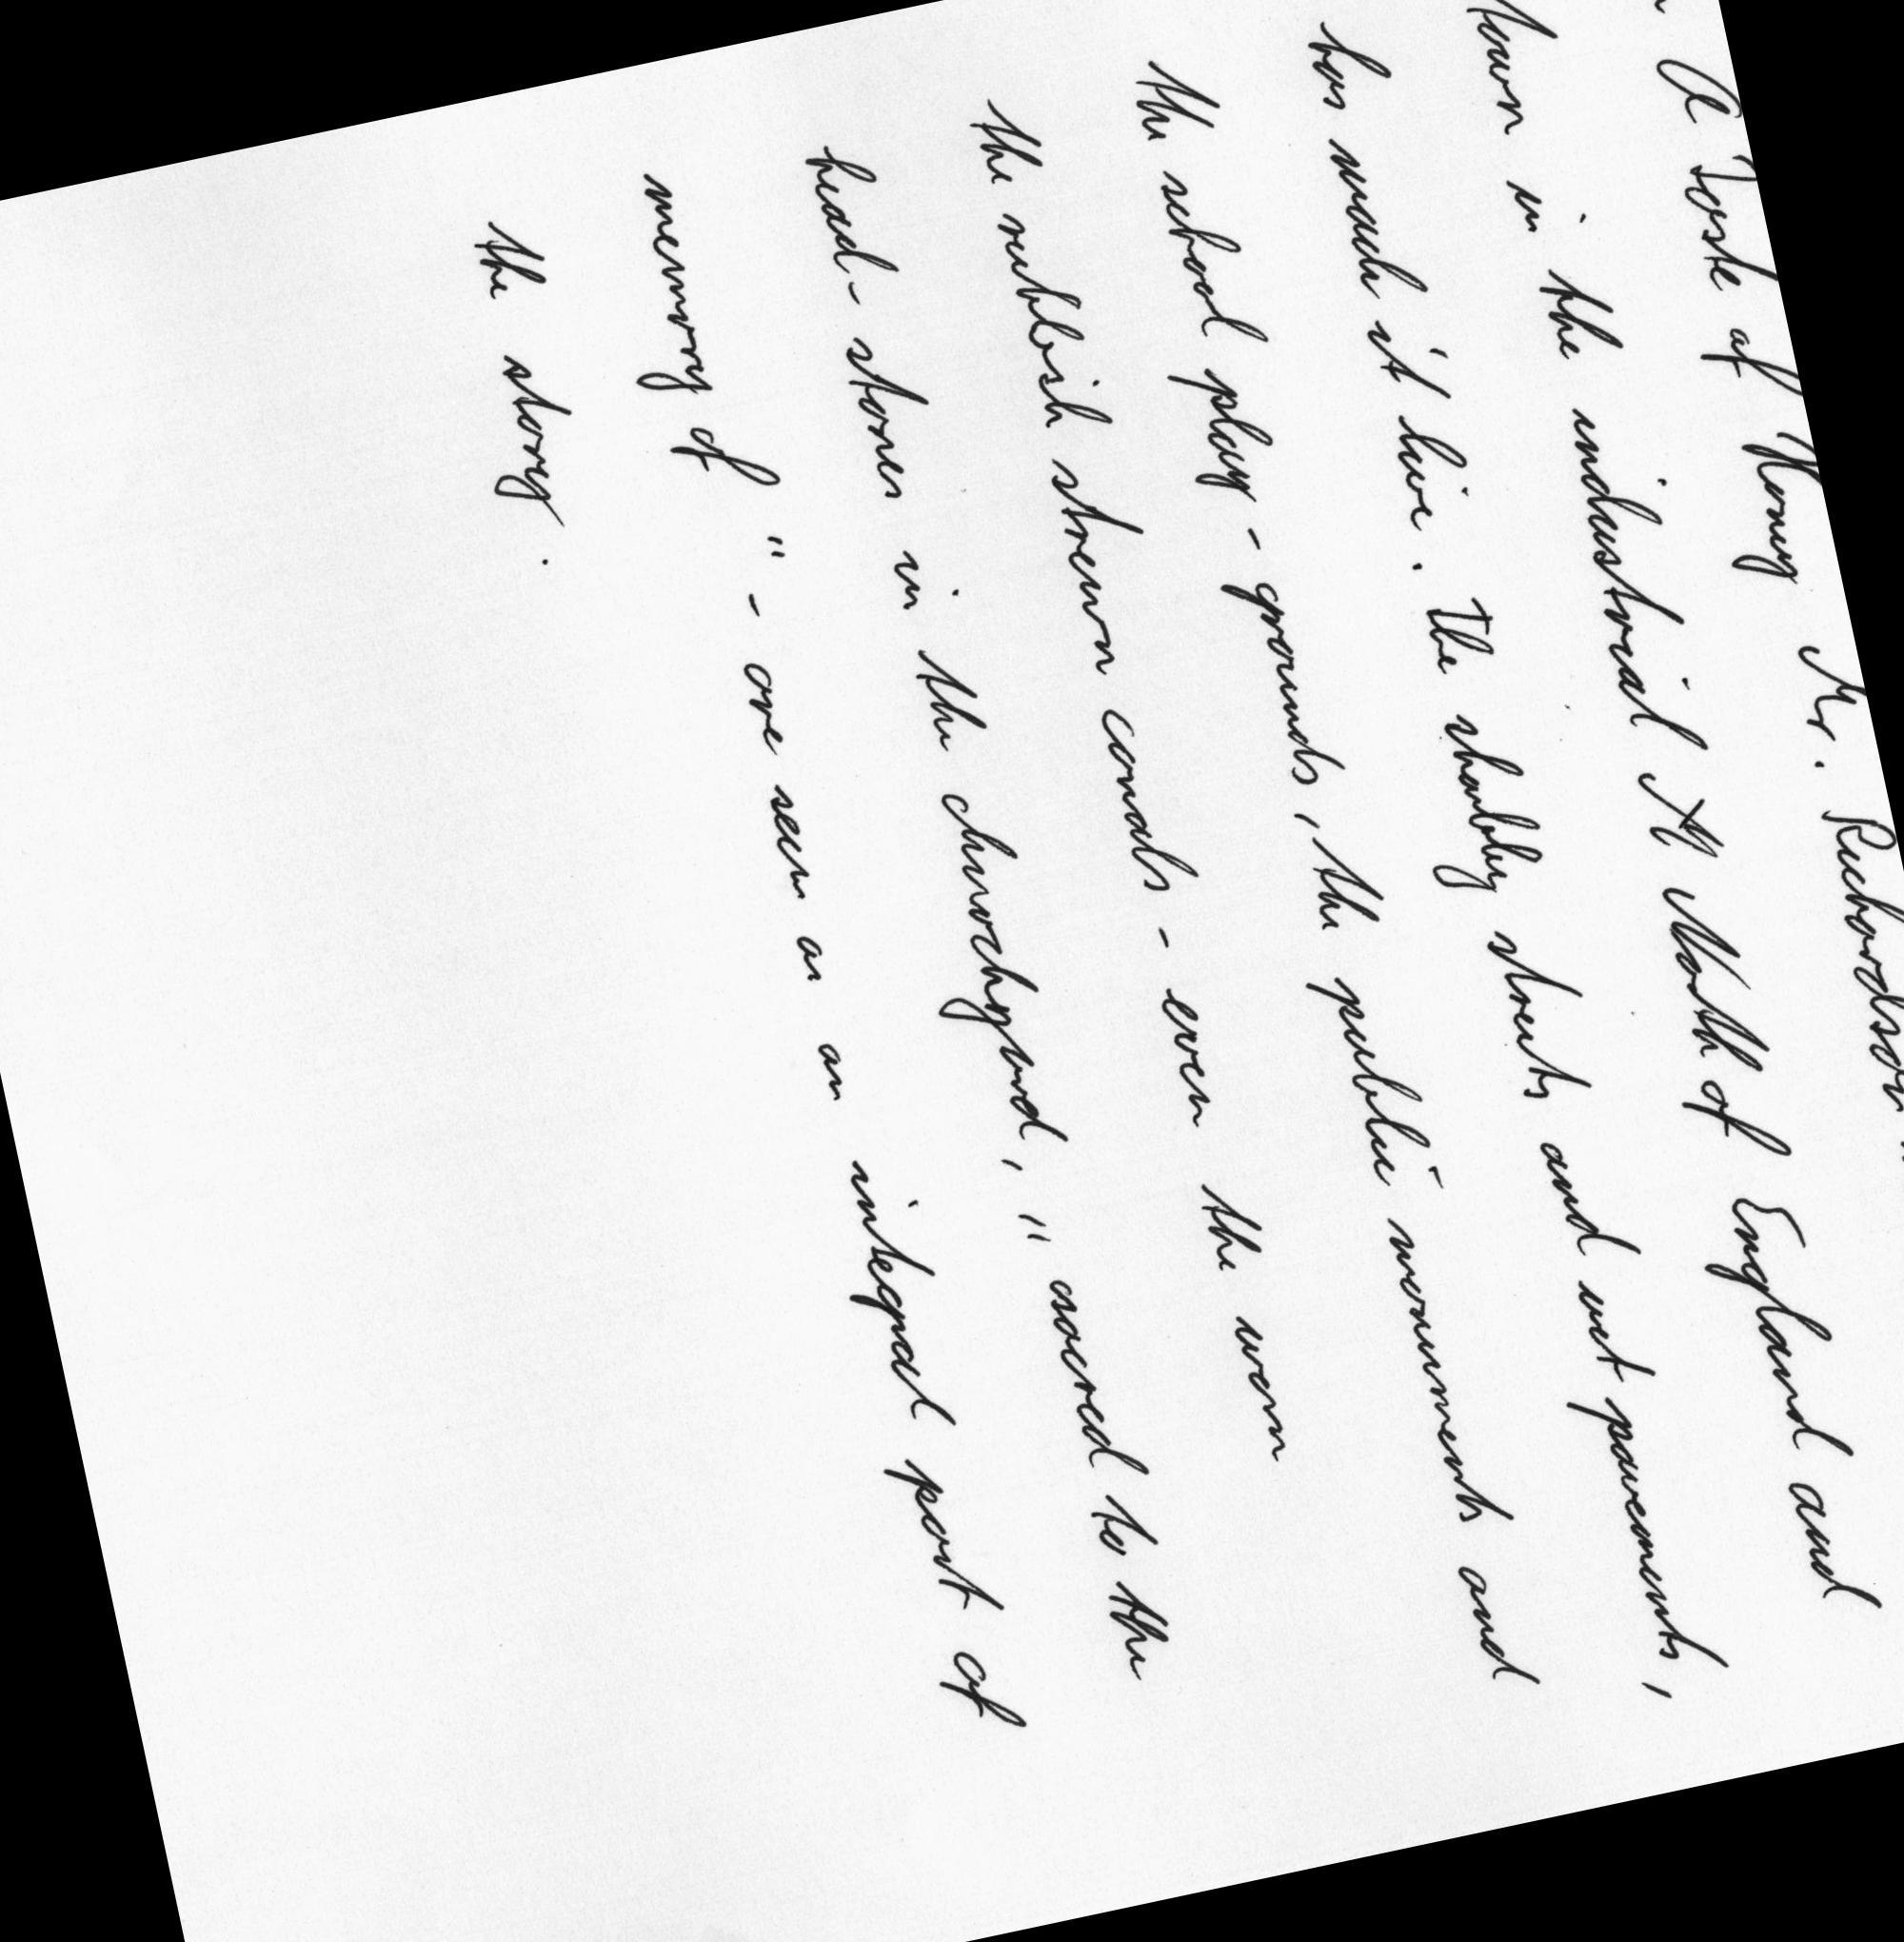 A Taste of Honey Mr. Richardson
town in the industrial North of England and
has made it live. The shabby streets and wet pavements,
the school play-grounds, the public monuments and
the rubbish strewn canals - even the worn
head-stones in the churchyard, "sacred to the
memory of" - are seen as an integral part of
the story.